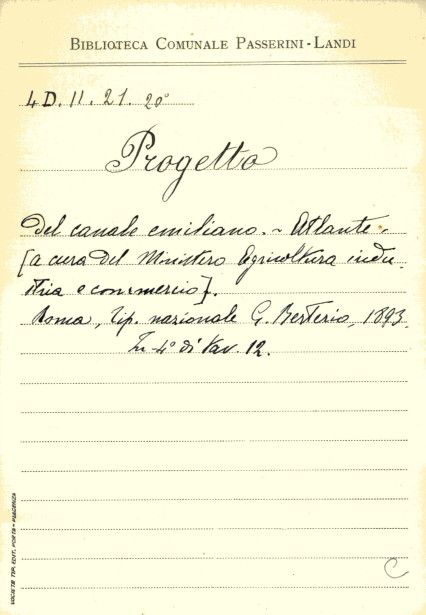 BIBLIOTECA COMUNALE PASSERINI-LANDI
4D. 11. 21. 20°
Progetto
del canale emiliano. - Atlante.
[a cura del Ministero Agricoltura indu-
stria e commercio].
Roma, tip. nazionale G. Berterio, 1893.
In-4° di tav. 12.
SOCIETÀ TIP. EDIT. PORTA - PIACENZA
C